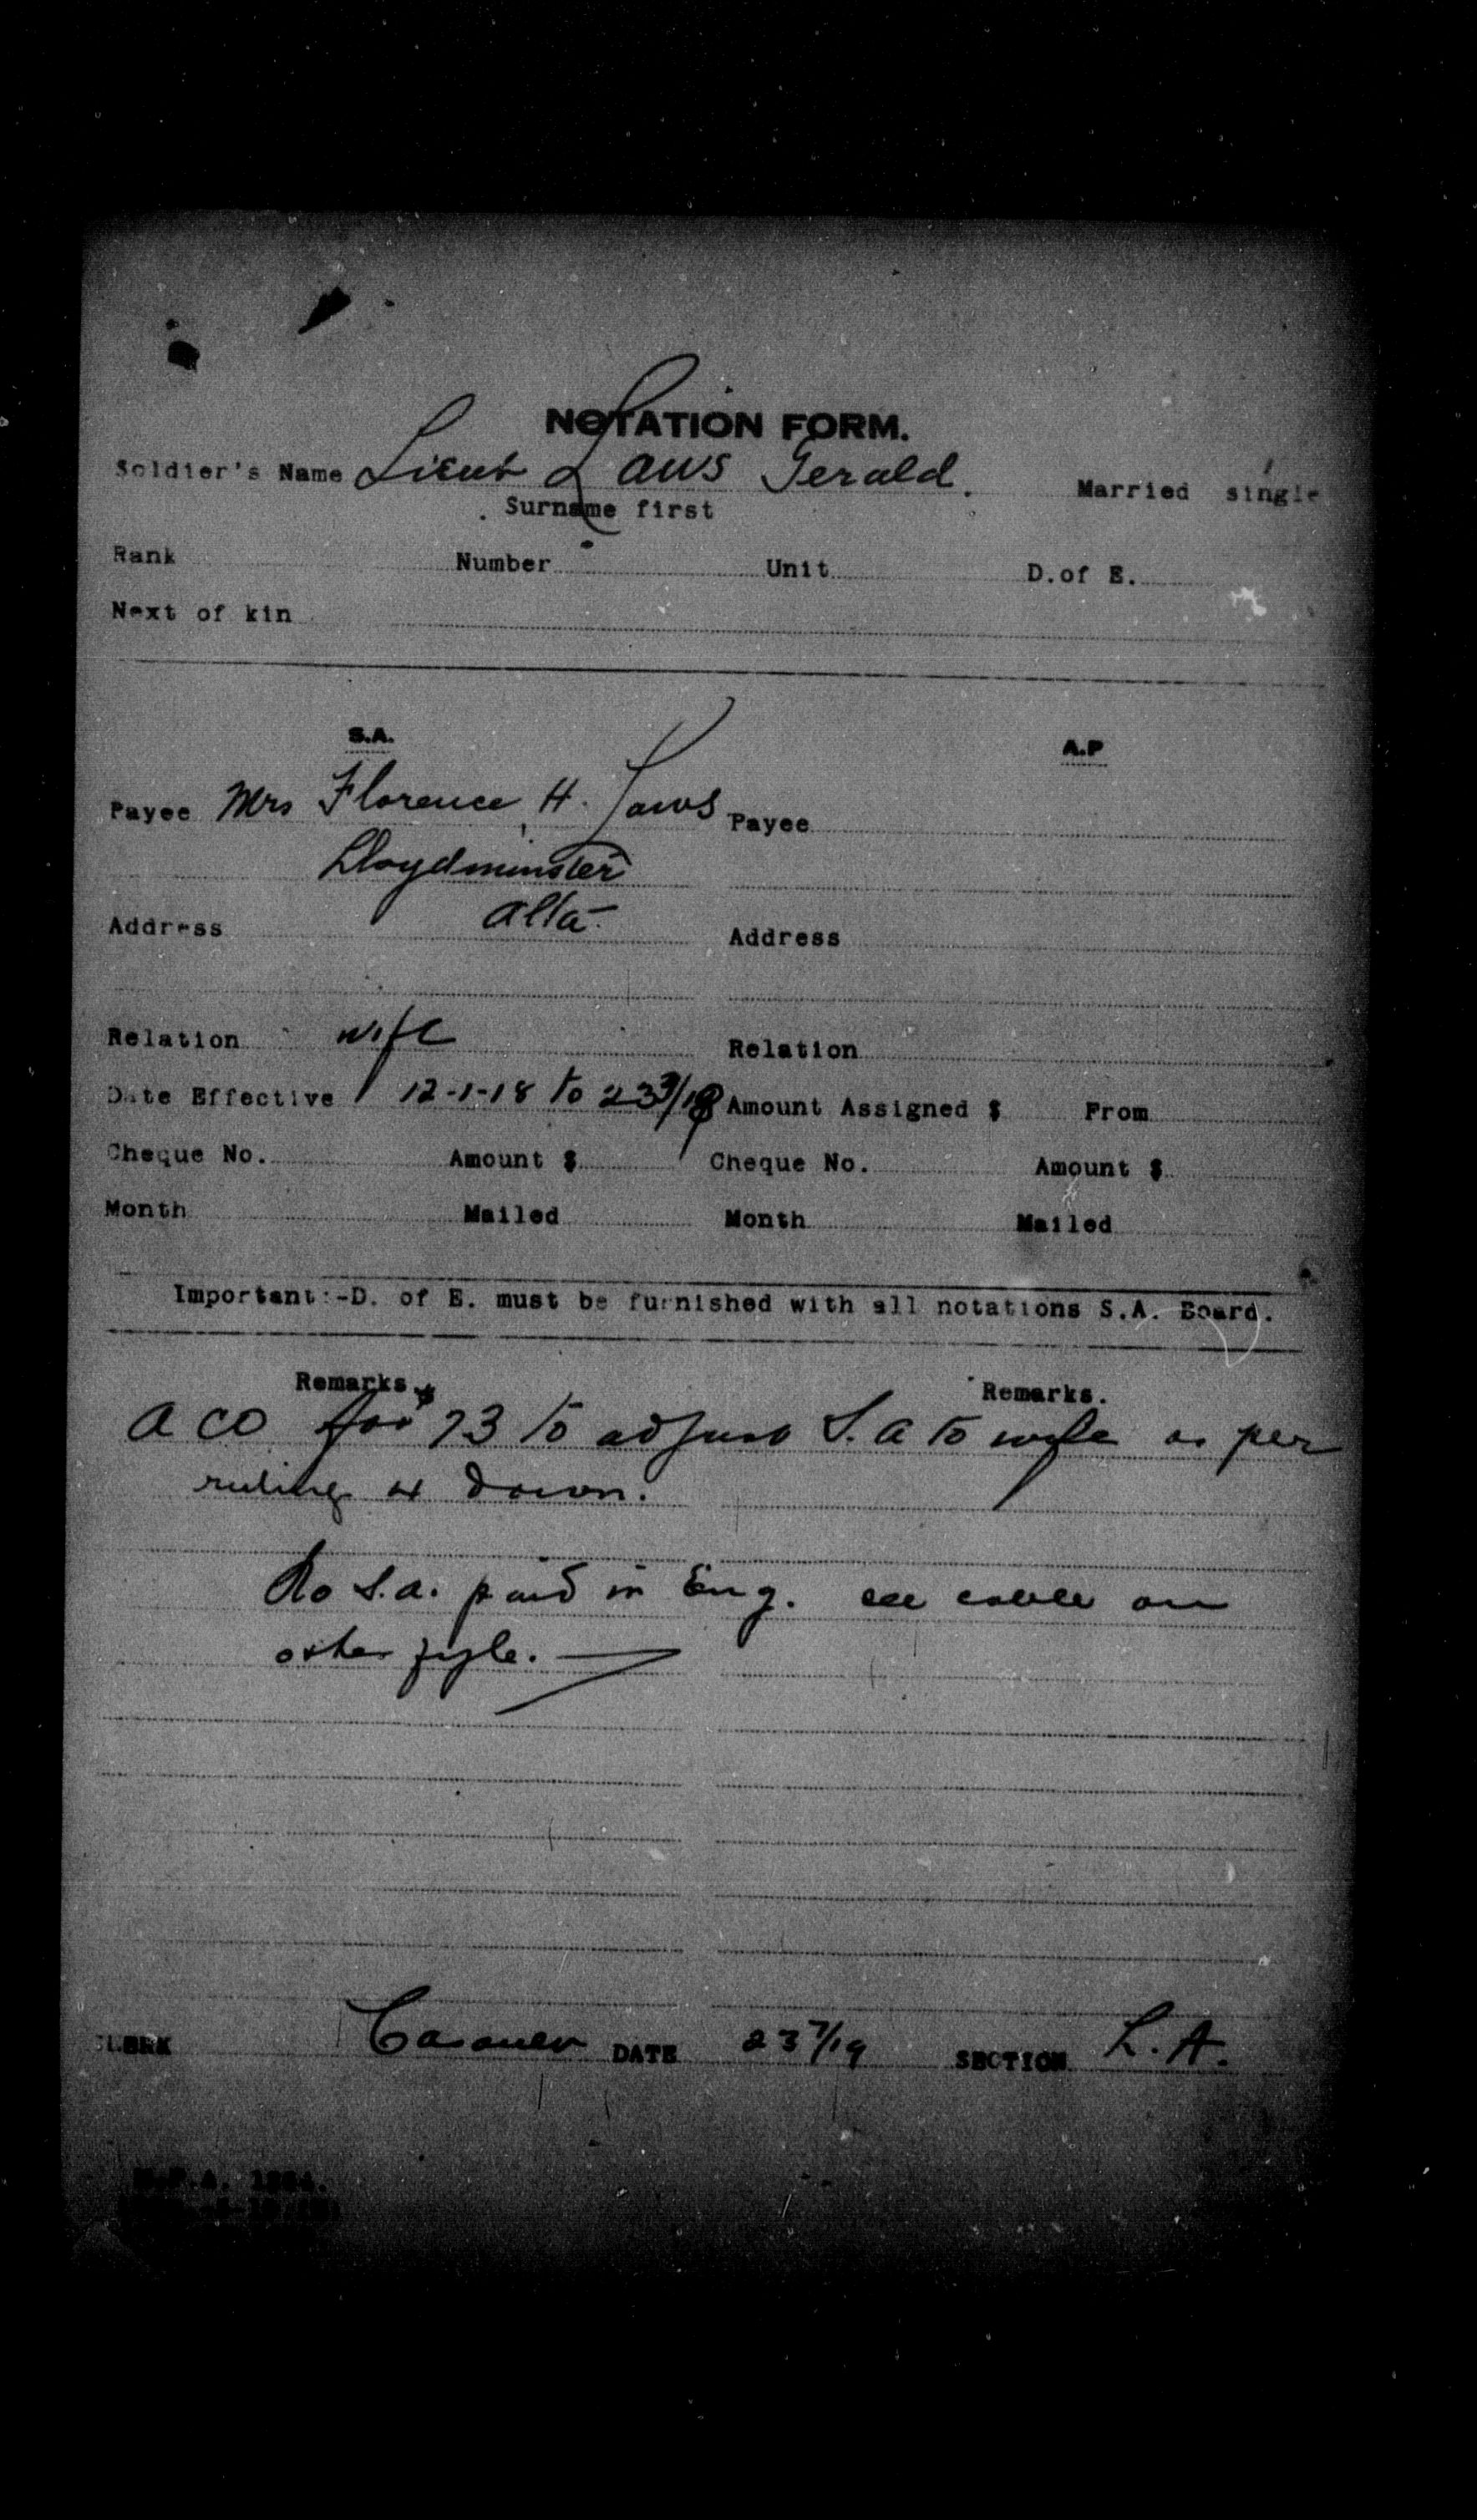 NOTATION FORM.
Soldier's Name Lieut Laws Gerald. Married single
Surname first
Rank Number Unit D.of E.
Next of kin
S.A. A.P
Payee Mrs Florence H. Laws Payee
Lloydminster
Address Alta. Address
Relation wife Relation
Date Effective 12-1-18 to 23 3/18 Amount Assigned $ From
Cheque No. Amount $ Cheque No. Amount $
Month Mailed Month Mailed
Important:-D. of E. must be furnished with all notations S.A. Board.
Remarks Remarks.
a co for $73 to adjust S.A to wife as per
ruling
No S.A. paid in Eng. see cable on
other fyle.
CLERK DATE 23 7/19 SECTION